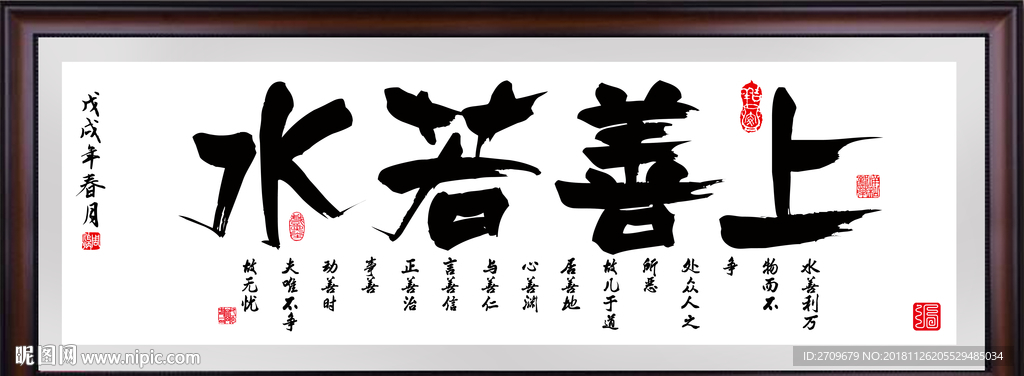 上善若水
水善利万
物而不
争
处众人之
所恶
故几于道
居善地
心善渊
与善仁
言善信
正善治
事善
动善时
夫唯不争
故无忧
戊戌年春月
昵图网 www.nipic.com
ID:2709679 NO:20181126205529485034